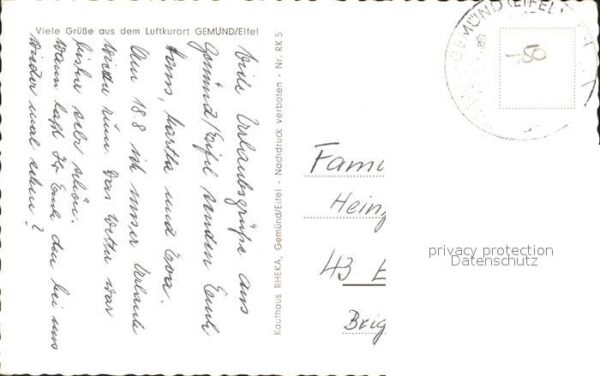 Viele Grüße aus dem Luftkurort GEMÜND/Eifel
Viele Urlaubsgrüße aus
Gemünd/Eifel senden Euch
Hans, Martha und Eva.
Am 18.8 ist unser Urlaub
wieder rum. Das Wetter war
bisher sehr schön.
Wann laßt Ihr Euch den bei uns
wieder mal sehen?
Kaufhaus RHEKA, Gemünd/Eifel - Nachdruck verboten - Nr. RK 5
GEMÜND (EIFEL)
-,50
Fami
Heinz
43 E
Brig
privacy protection
Datenschutz